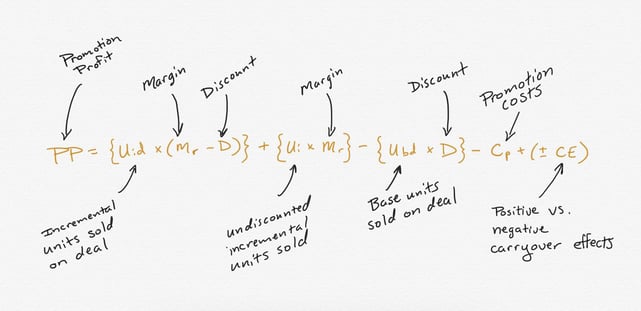 Promotion
Profit
Margin
Discount
Margin
Discount
Promotion
costs
PP = {Uid × (Mr - D)} + {Ui × Mr} - {Ubd × D} - Cp + (± CE)
Incremental
units sold
on deal
undiscounted
incremental
units sold
Base units
sold on deal
Positive vs.
negative
carryover effects